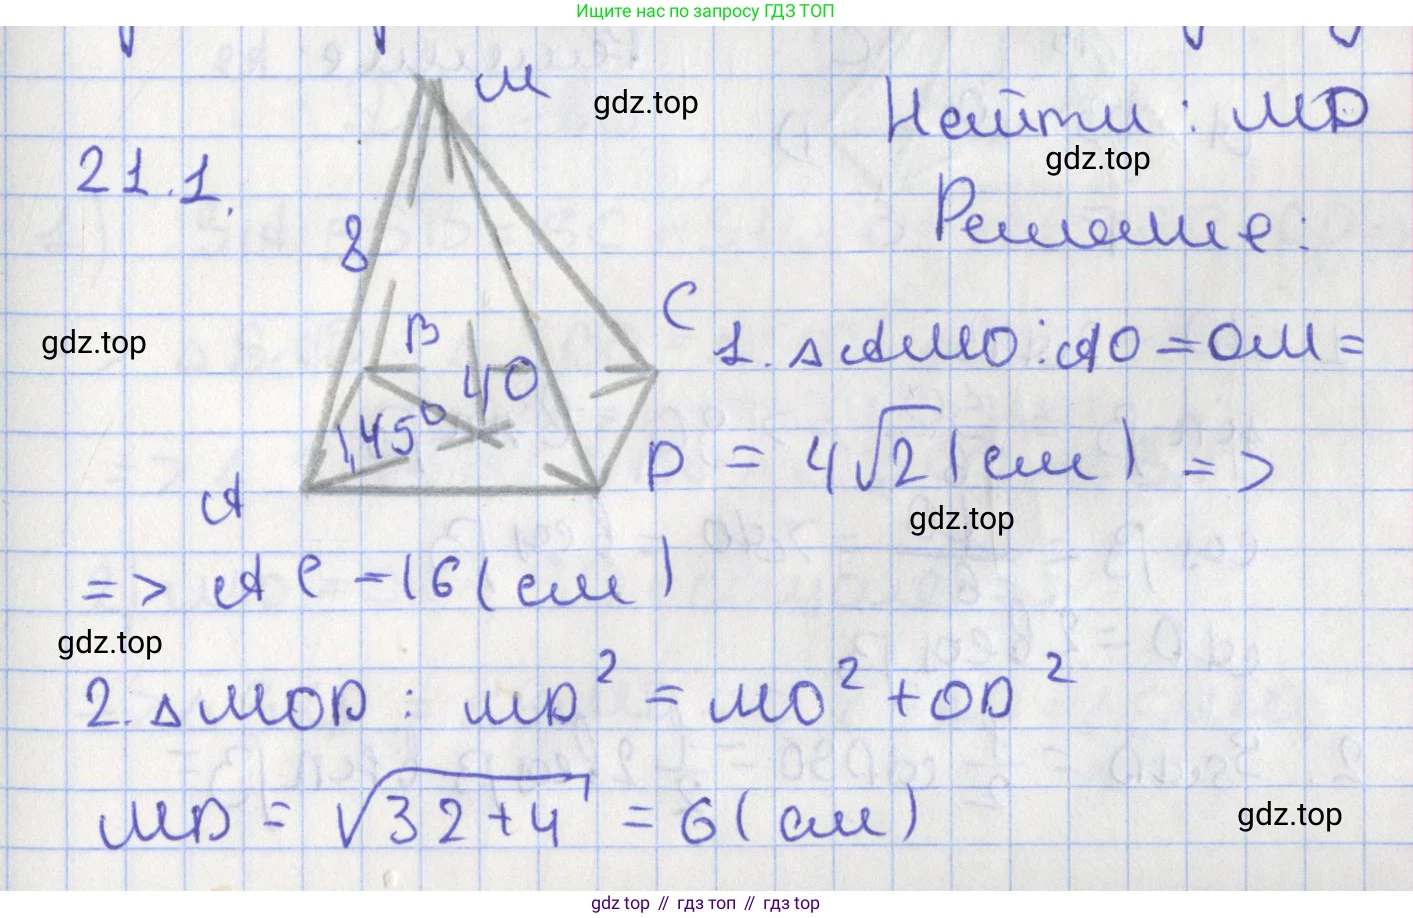 Ищите нас по запросу ГДЗ ТОП
М
gdz.top
Найти: MD
gdz.top
21.1.
Решение:
8
gdz.top
B
C
1. △AMO: AO = OM =
40
45°
D
= 4√2 (см) =>
A
gdz.top
=> AC = 16 (см)
gdz.top
2. △MOD: MD² = MO² + OD²
MD = √32+4 = 6 (см)
gdz.top
gdz top // гдз топ // гдз top